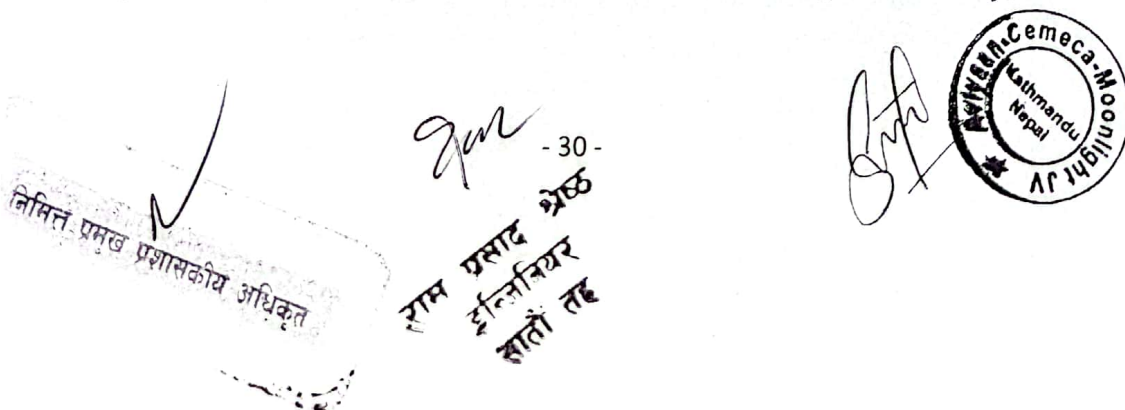 - 30 -
निमित्त प्रमुख प्रशासकीय अधिकृत
राम प्रसाद श्रेष्ठ
इन्जिनियर
सातौं तह
Cemeca-Moonlight JV
Kathmandu
Nepal